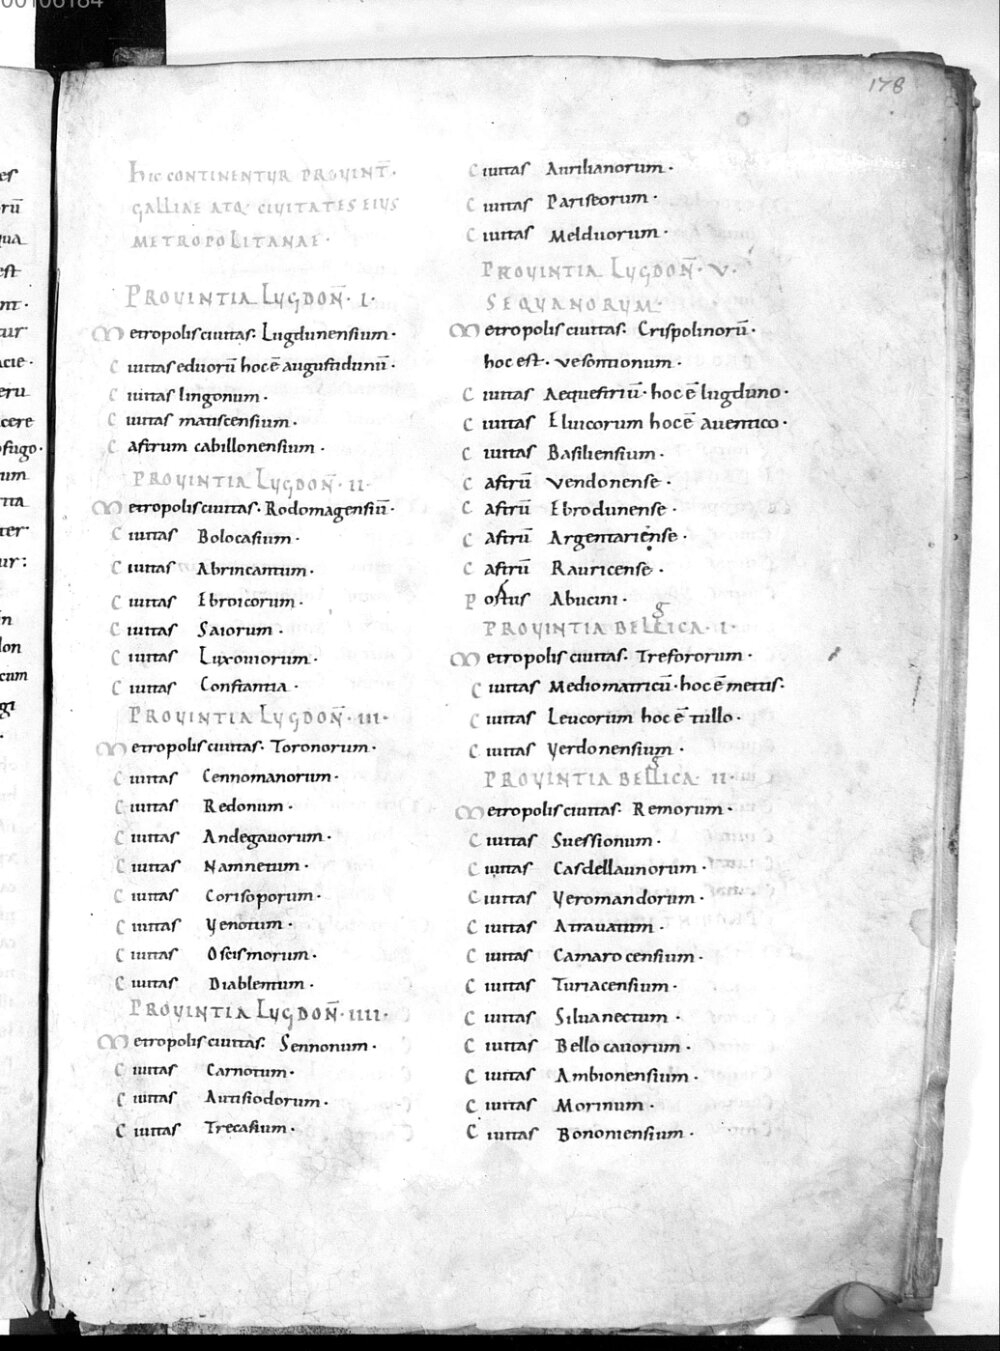 00106184
178
es
rū
qua
est
nt·
tur
acie·
eru
cere
ofugo·
um
tta
ter
ur:
in
lon
cum
gi
hIC CONTINENTUR PROUINT̄·
GALLIAE ATQ· CIUITATES EIUS
METROPOLITANAE·
PROUINTIA LUGDON̄·I·
Metropolis ciuitas· Lugdunensium·
Ciuitas eduorū hoc ē augustidunū·
Ciuitas lingonum·
Ciuitas matiscensium·
Castrum cabillonensium·
PROUINTIA LUGDON̄·II·
Metropolis ciuitas· Rodomagensiū·
Ciuitas Bolocasium·
Ciuitas Abrincantum·
Ciuitas Ebroicorum·
Ciuitas Saiorum·
Ciuitas Luxouiorum·
Ciuitas Constantia·
PROUINTIA LUGDON̄·III·
Metropolis ciuitas· Toronorum·
Ciuitas Cennomanorum·
Ciuitas Redonum·
Ciuitas Andegauorum·
Ciuitas Namnetum·
Ciuitas Corisoporum·
Ciuitas Venotum·
Ciuitas Oscismorum·
Ciuitas Diablentum·
PROUINTIA LUGDON̄·IIII·
Metropolis ciuitas· Sennonum·
Ciuitas Carnotum·
Ciuitas Autisiodorum·
Ciuitas Trecasium·
Ciuitas Aurilianorum·
Ciuitas Parisiorum·
Ciuitas Melduorum·
PROUINTIA LUGDON̄·V·
SEQUANORUM·
Metropolis ciuitas· Crispolinorū·
hoc est· vesontionum·
Ciuitas Aequestriū· hoc ē lugduno·
Ciuitas Eluicorum hoc ē auentico·
Ciuitas Basiliensium·
Castrū vendonense·
Castrū Ebrodunense·
Castrū Argentariense·
Castrū Rauricense·
Postus Abucini·
PROUINTIA BELLICA·I·
g
Metropolis ciuitas· Trefororum·
Ciuitas Mediomatricū· hoc ē mettis·
Ciuitas Leucorum hoc ē tullo·
Ciuitas Verdonensium·
g
PROUINTIA BELLICA·II·
Metropolis ciuitas· Remorum·
Ciuitas Suessionum·
Ciuitas Casdellaunorum·
Ciuitas Veromandorum·
Ciuitas Atrauatum·
Ciuitas Camarocensium·
Ciuitas Turiacensium·
Ciuitas Siluanectum·
Ciuitas Bellocauorum·
Ciuitas Ambionensium·
Ciuitas Morinum·
Ciuitas Bononiensium·